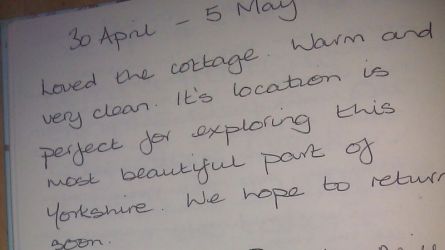 30 April - 5 May
Loved the cottage. Warm and
very clean. It's location is
perfect for exploring this
most beautiful part of
Yorkshire. We hope to return
soon.